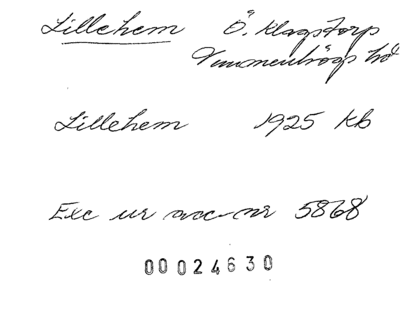 Lillehem Ö. Klagstorp
Vemmenhögs hd
Lillehem 1925 Kb
Exc ur acc-nr 5868
00024630